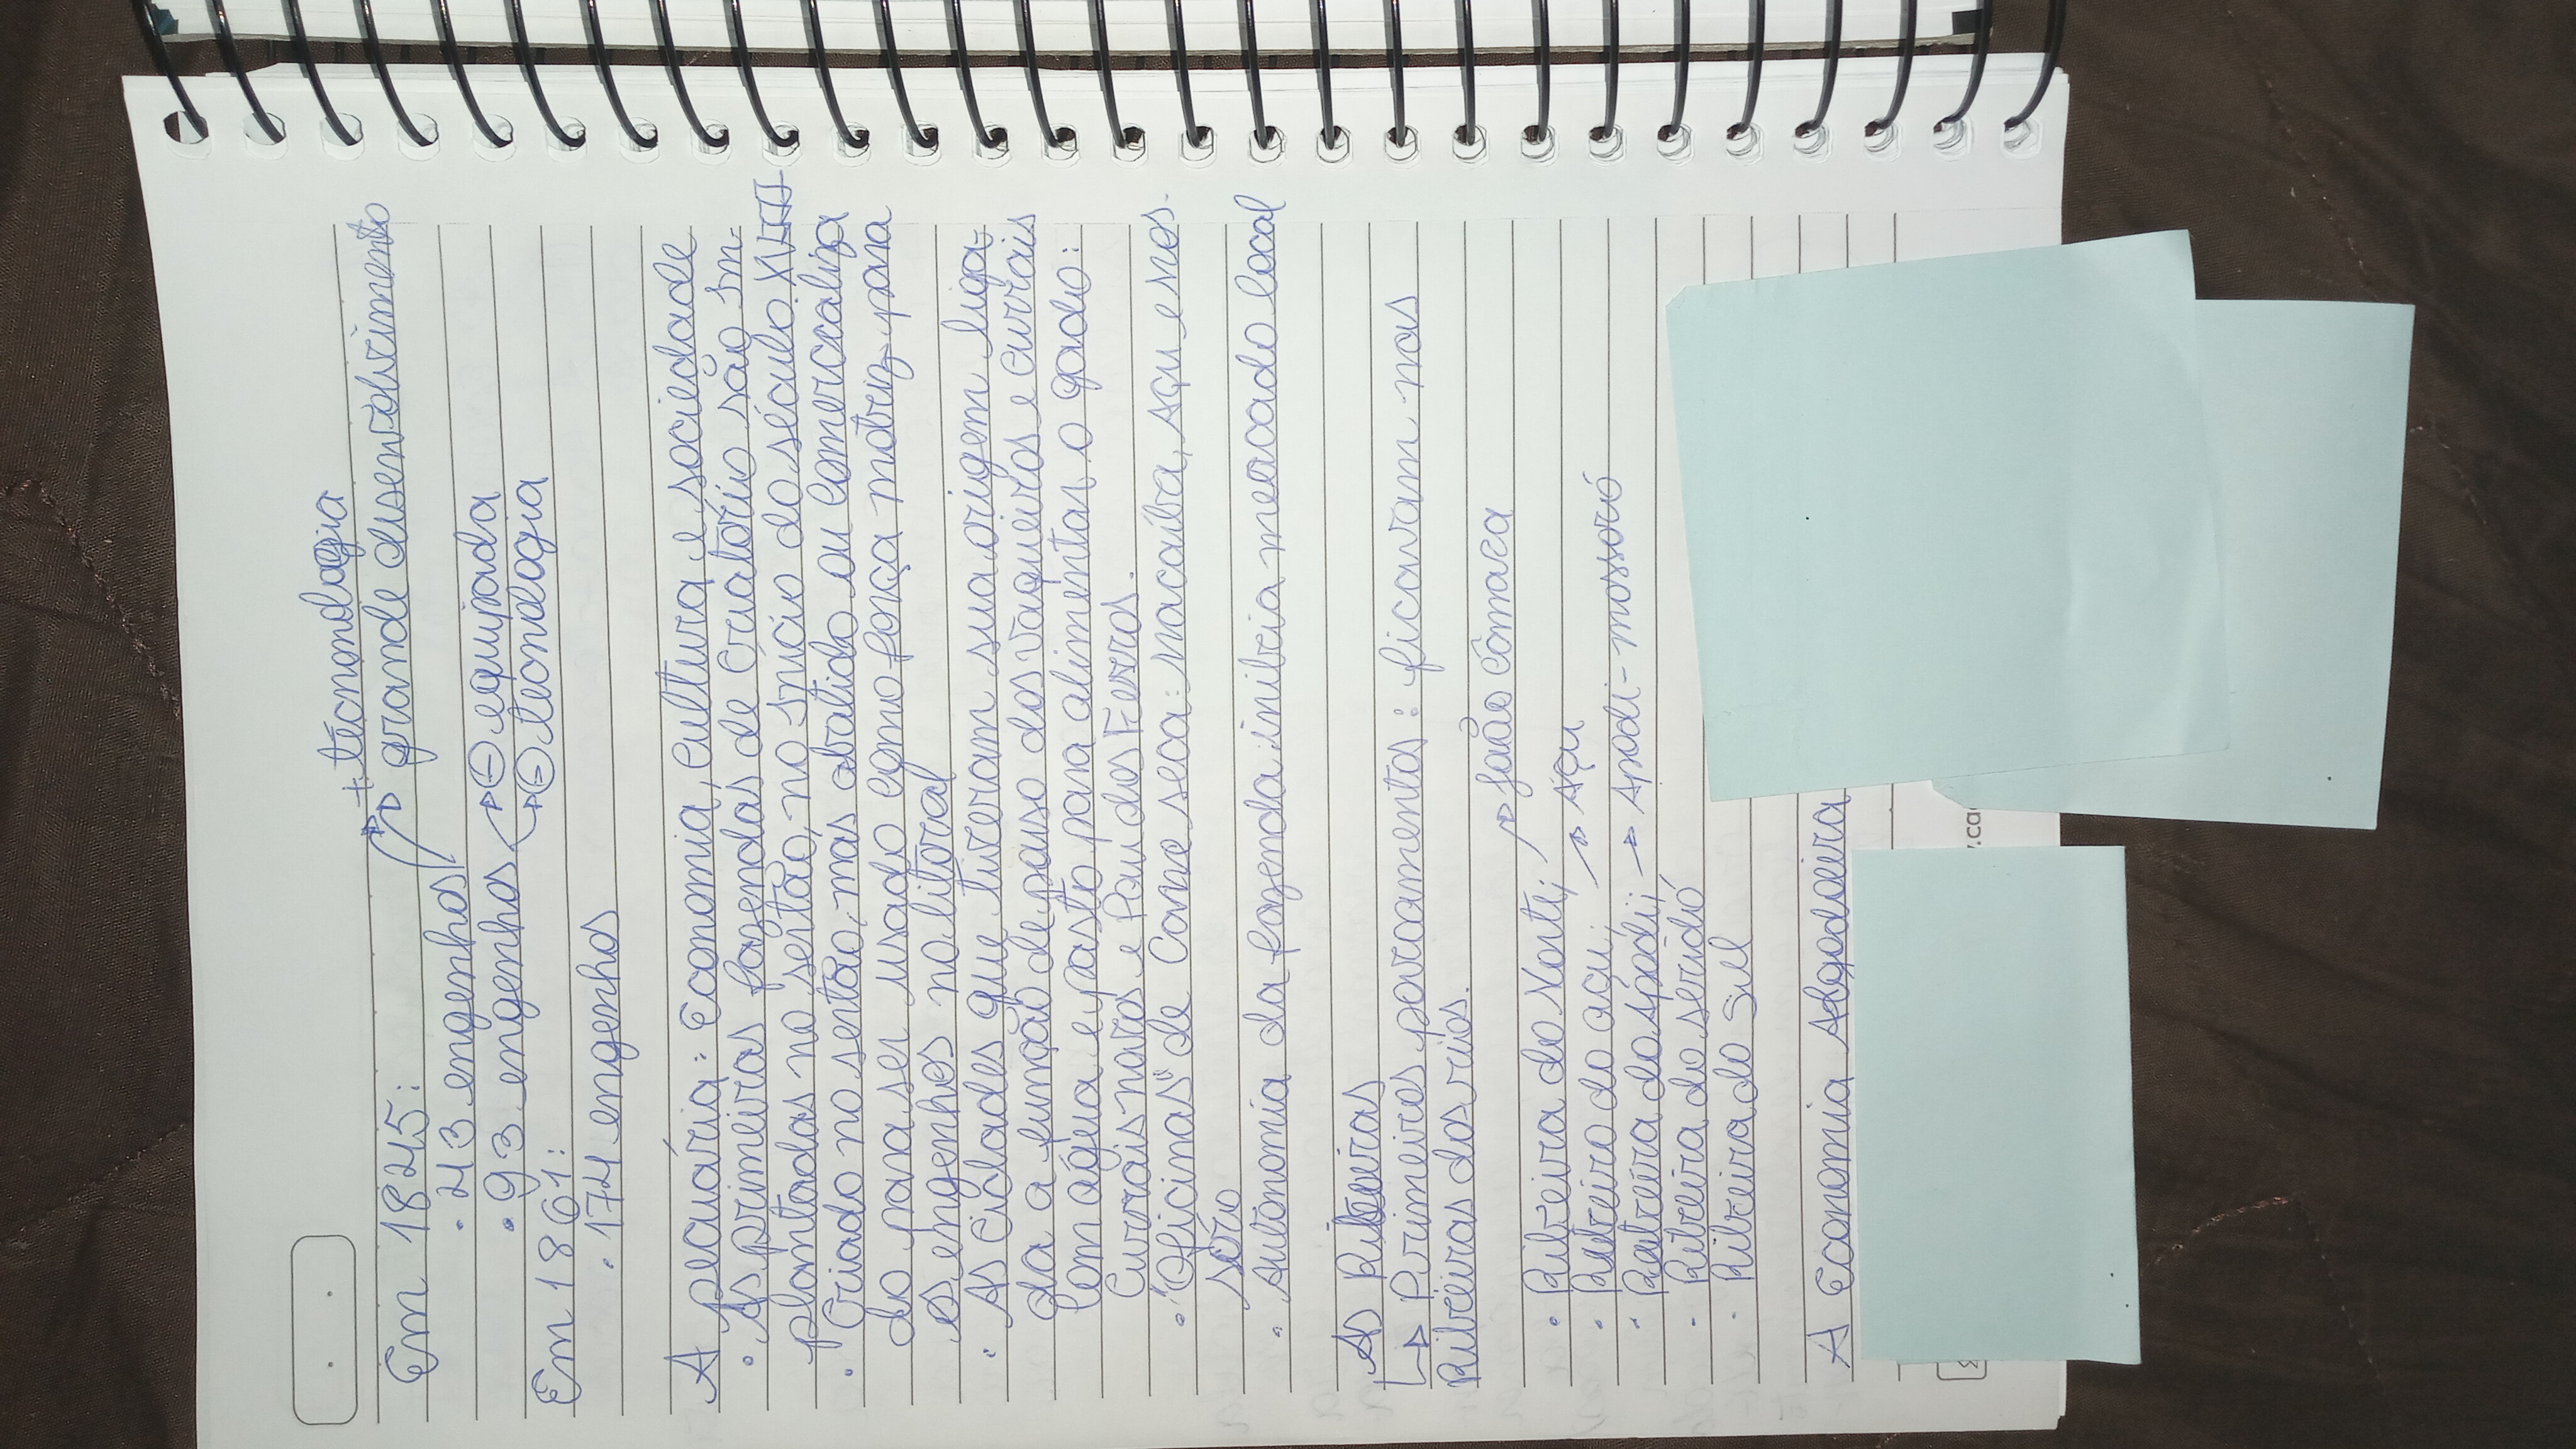 + tecnologia
Em 1845: grande desenvolvimento
· 43 engenhos
· 93 engenhos ⊖ equipada
⊖ tecnologia
Em 1861:
· 174 engenhos
A pecuária: Economia, cultura e sociedade
· As primeiras fazendas de criatório são im-
plantadas no sertão, no início do século XVIII
· Criado no sertão, mas abatido ou comercializa
do para ser usado como força motriz para
os engenhos no litoral
· As cidades que tiveram sua origem liga-
da a função de pouso dos vaqueiros e currais
com água e pasto para alimentar o gado:
Currais novos e Pau dos Ferros.
· "Oficinas" de Carne seca: macaíba, Açu e mos-
soró
· Autonomia da fazenda inibia mercado local
As Ribeiras
↳ Primeiros povoamentos: ficavam nas
Ribeiras dos rios.
→ João Câmara
· Ribeira do Norte;
· Ribeira do açu; → Açu
· Ribeira do apodi; → Apodi - mossoró
· Ribeira do seridó
· Ribeira do Sul
A Economia Algodoeira